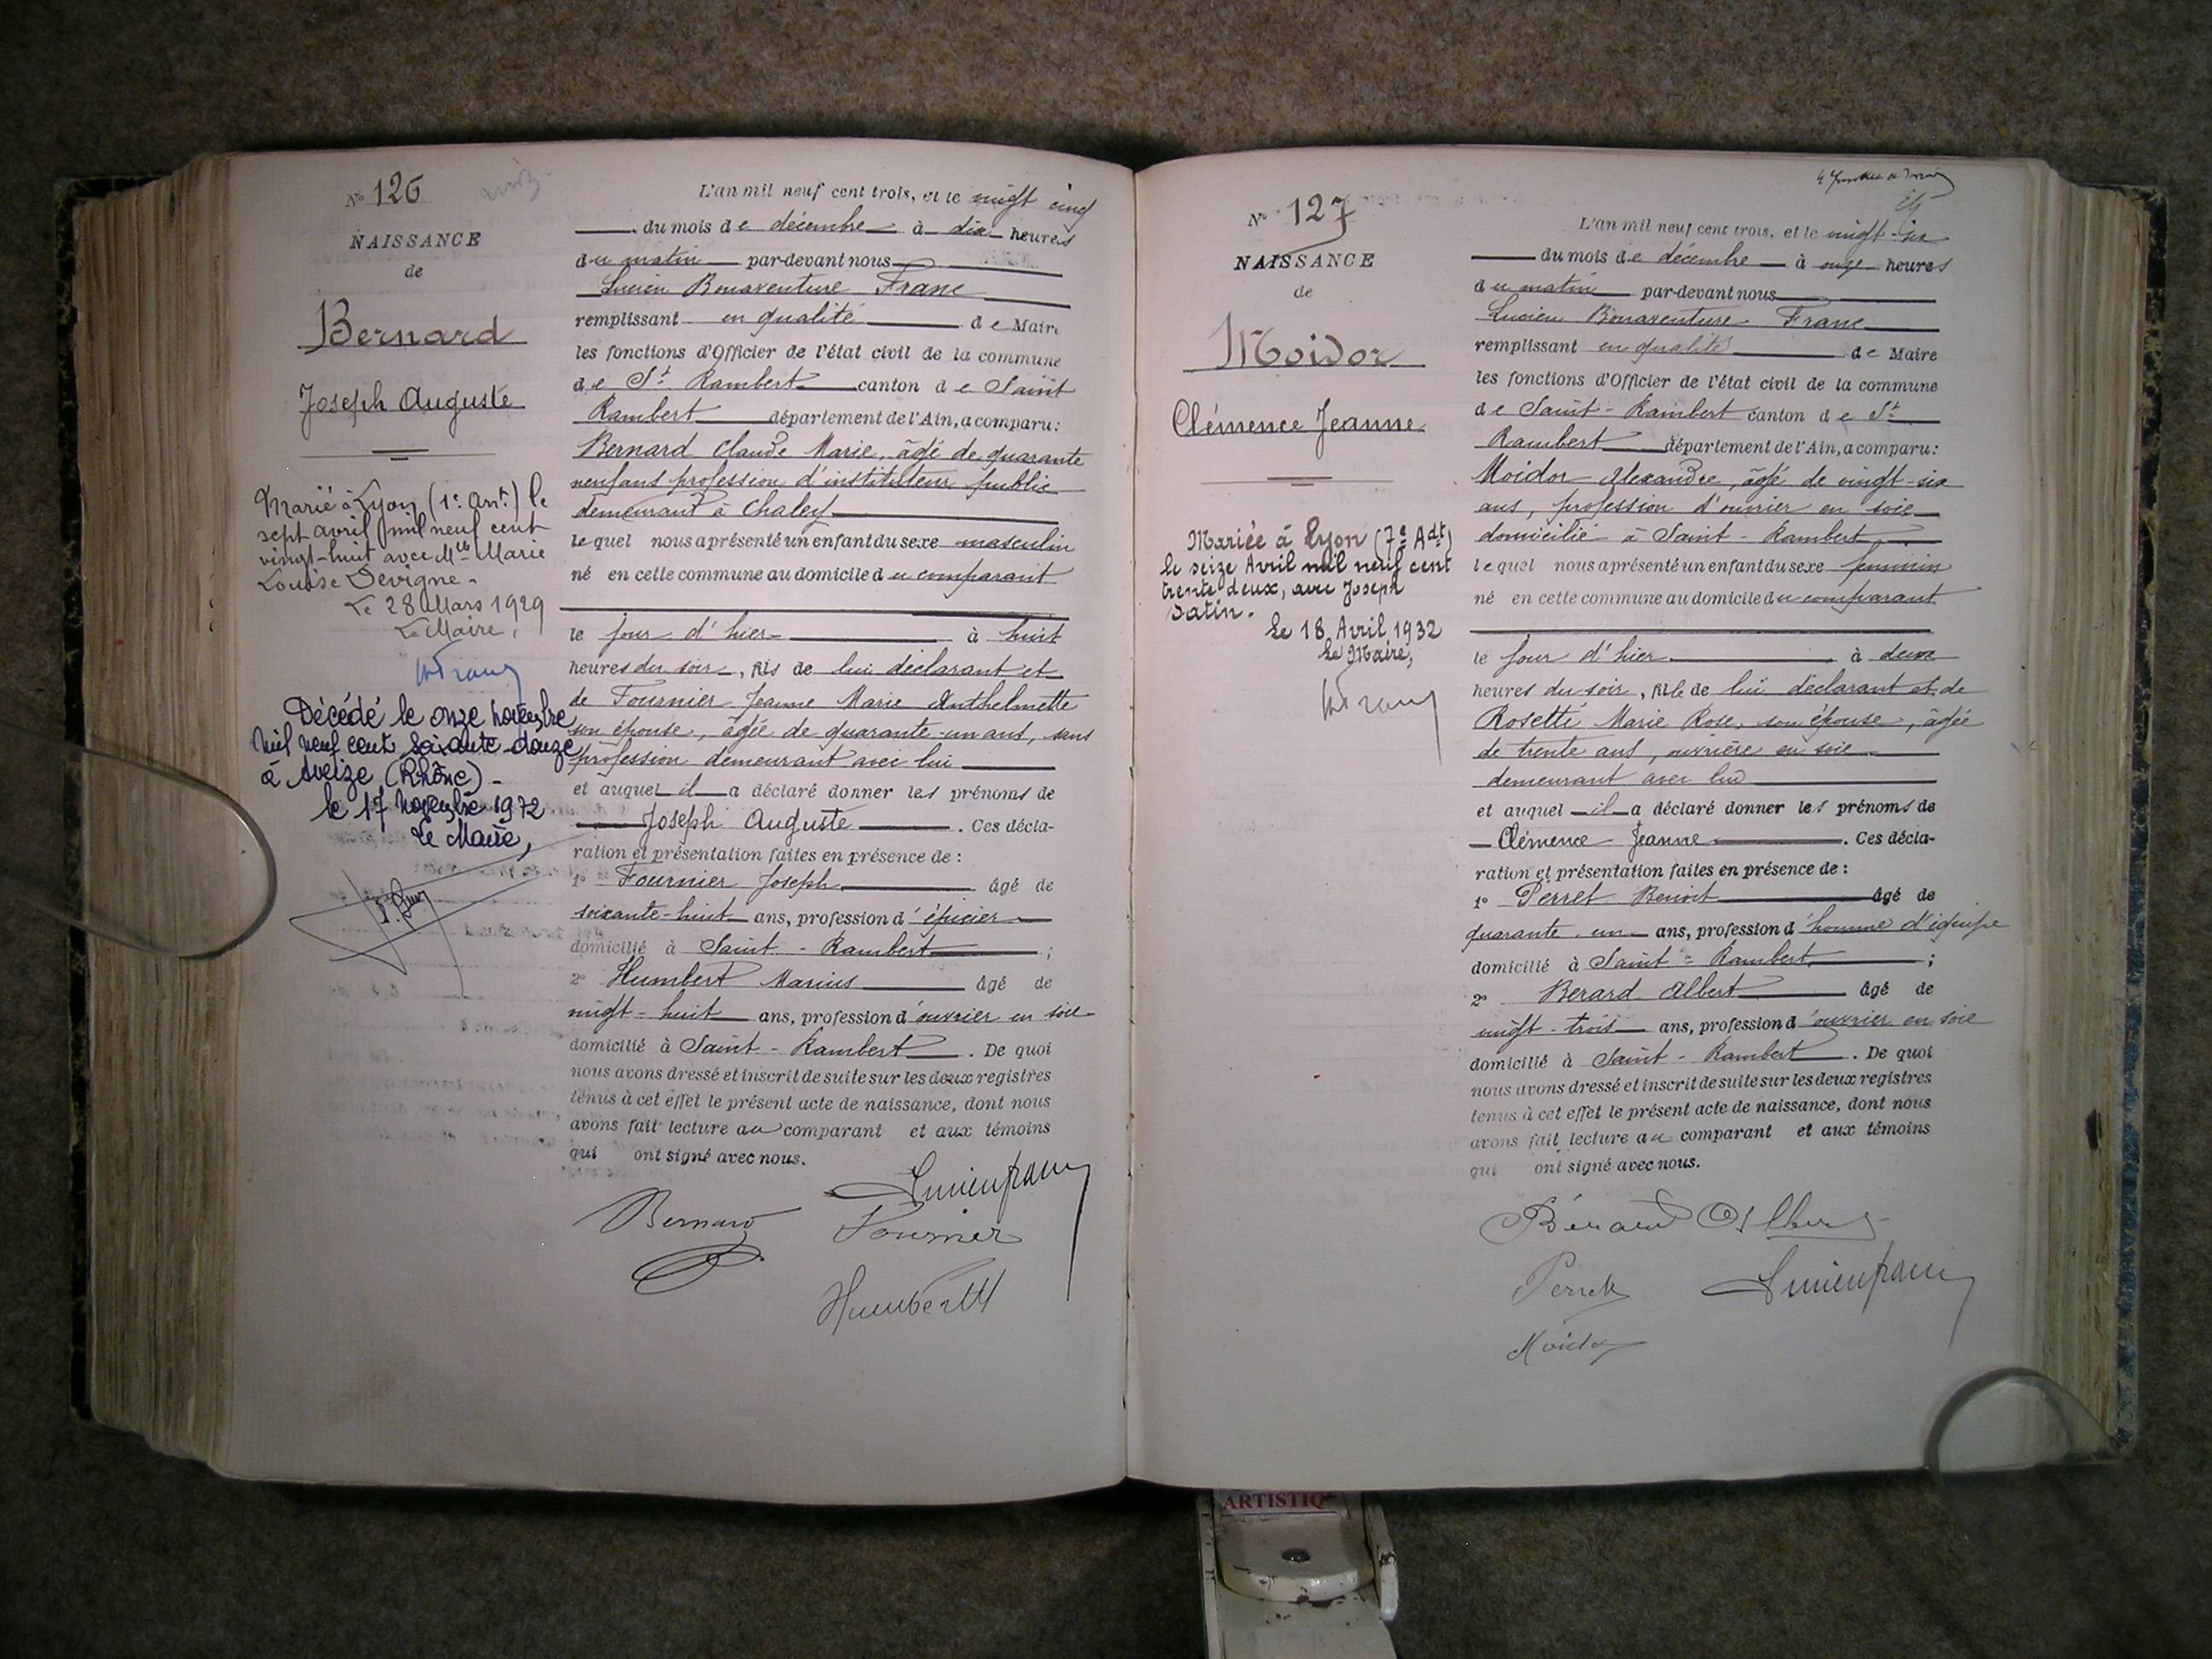 N° 126
NAISSANCE
de
Bernard
Joseph Auguste
Marié à Lyon (1e arrt) le
sept avril mil neuf cent
vingt-huit avec Mlle Marie
Louise Devigne.
Le 28 Mars 1929
Le Maire,
Décédé le onze novembre
mil neuf cent soixante-douze
à Aveize (Rhône) -
le 17 novembre 1972
Le Maire,
L'an mil neuf cent trois, et le vingt cinq
du mois de décembre à dix heures
du matin par-devant nous
Lucien Bonaventure Franc
remplissant en qualité de Maire
les fonctions d'Officier de l'état civil de la commune
de St Rambert canton de Saint
Rambert département de l'Ain, a comparu :
Bernard Claude Marie, âgé de quarante
neuf ans profession d'instituteur public
demeurant à Chaley
lequel nous a présenté un enfant du sexe masculin
né en cette commune au domicile du comparant
le jour d'hier à huit
heures du soir, fils de lui déclarant et
de Fournier Jeanne Marie Anthelmette
son épouse, âgée de quarante-un ans, sans
profession demeurant avec lui
et auquel il a déclaré donner les prénoms de
Joseph Auguste . Ces décla-
ration et présentation faites en présence de :
1° Fournier Joseph âgé de
soixante-huit ans, profession d'épicier
domicilié à Saint-Rambert ;
2° Humbert Marius âgé de
vingt-huit ans, profession d'ouvrier en soie
domicilié à Saint-Rambert . De quoi
nous avons dressé et inscrit de suite sur les deux registres
tenus à cet effet le présent acte de naissance, dont nous
avons fait lecture au comparant et aux témoins
qui ont signé avec nous.
Lucien franc
Bernard
Fournier
Humbert
N° 127
NAISSANCE
de
Moidor
Clémence Jeanne
Mariée à Lyon (7e Adt)
le seize Avril mil neuf cent
trente-deux, avec Joseph
Satin.
Le 18 Avril 1932
Le Maire,
L'an mil neuf cent trois, et le vingt-six
du mois de décembre à onze heures
du matin par-devant nous
Lucien Bonaventure Franc
remplissant en qualité de Maire
les fonctions d'Officier de l'état civil de la commune
de Saint-Rambert canton de St
Rambert département de l'Ain, a comparu :
Moidor Alexandre, âgé de vingt-six
ans, profession d'ouvrier en soie
domicilié à Saint-Rambert
lequel nous a présenté un enfant du sexe féminin
né en cette commune au domicile du comparant
le jour d'hier à deux
heures du soir, fille de lui déclarant et de
Rosetti Marie Rose, son épouse, âgée
de trente ans, ouvrière en soie
demeurant avec lui
et auquel il a déclaré donner les prénoms de
Clémence Jeanne . Ces décla-
ration et présentation faites en présence de :
1° Perret Benoit âgé de
quarante-un ans, profession d'homme d'équipe
domicilié à Saint-Rambert ;
2° Berard Albert âgé de
vingt-trois ans, profession d'ouvrier en soie
domicilié à Saint-Rambert . De quoi
nous avons dressé et inscrit de suite sur les deux registres
tenus à cet effet le présent acte de naissance, dont nous
avons fait lecture au comparant et aux témoins
qui ont signé avec nous.
Bérard Albert
Perret
Lucien franc
Moidor
ARTISTIQ